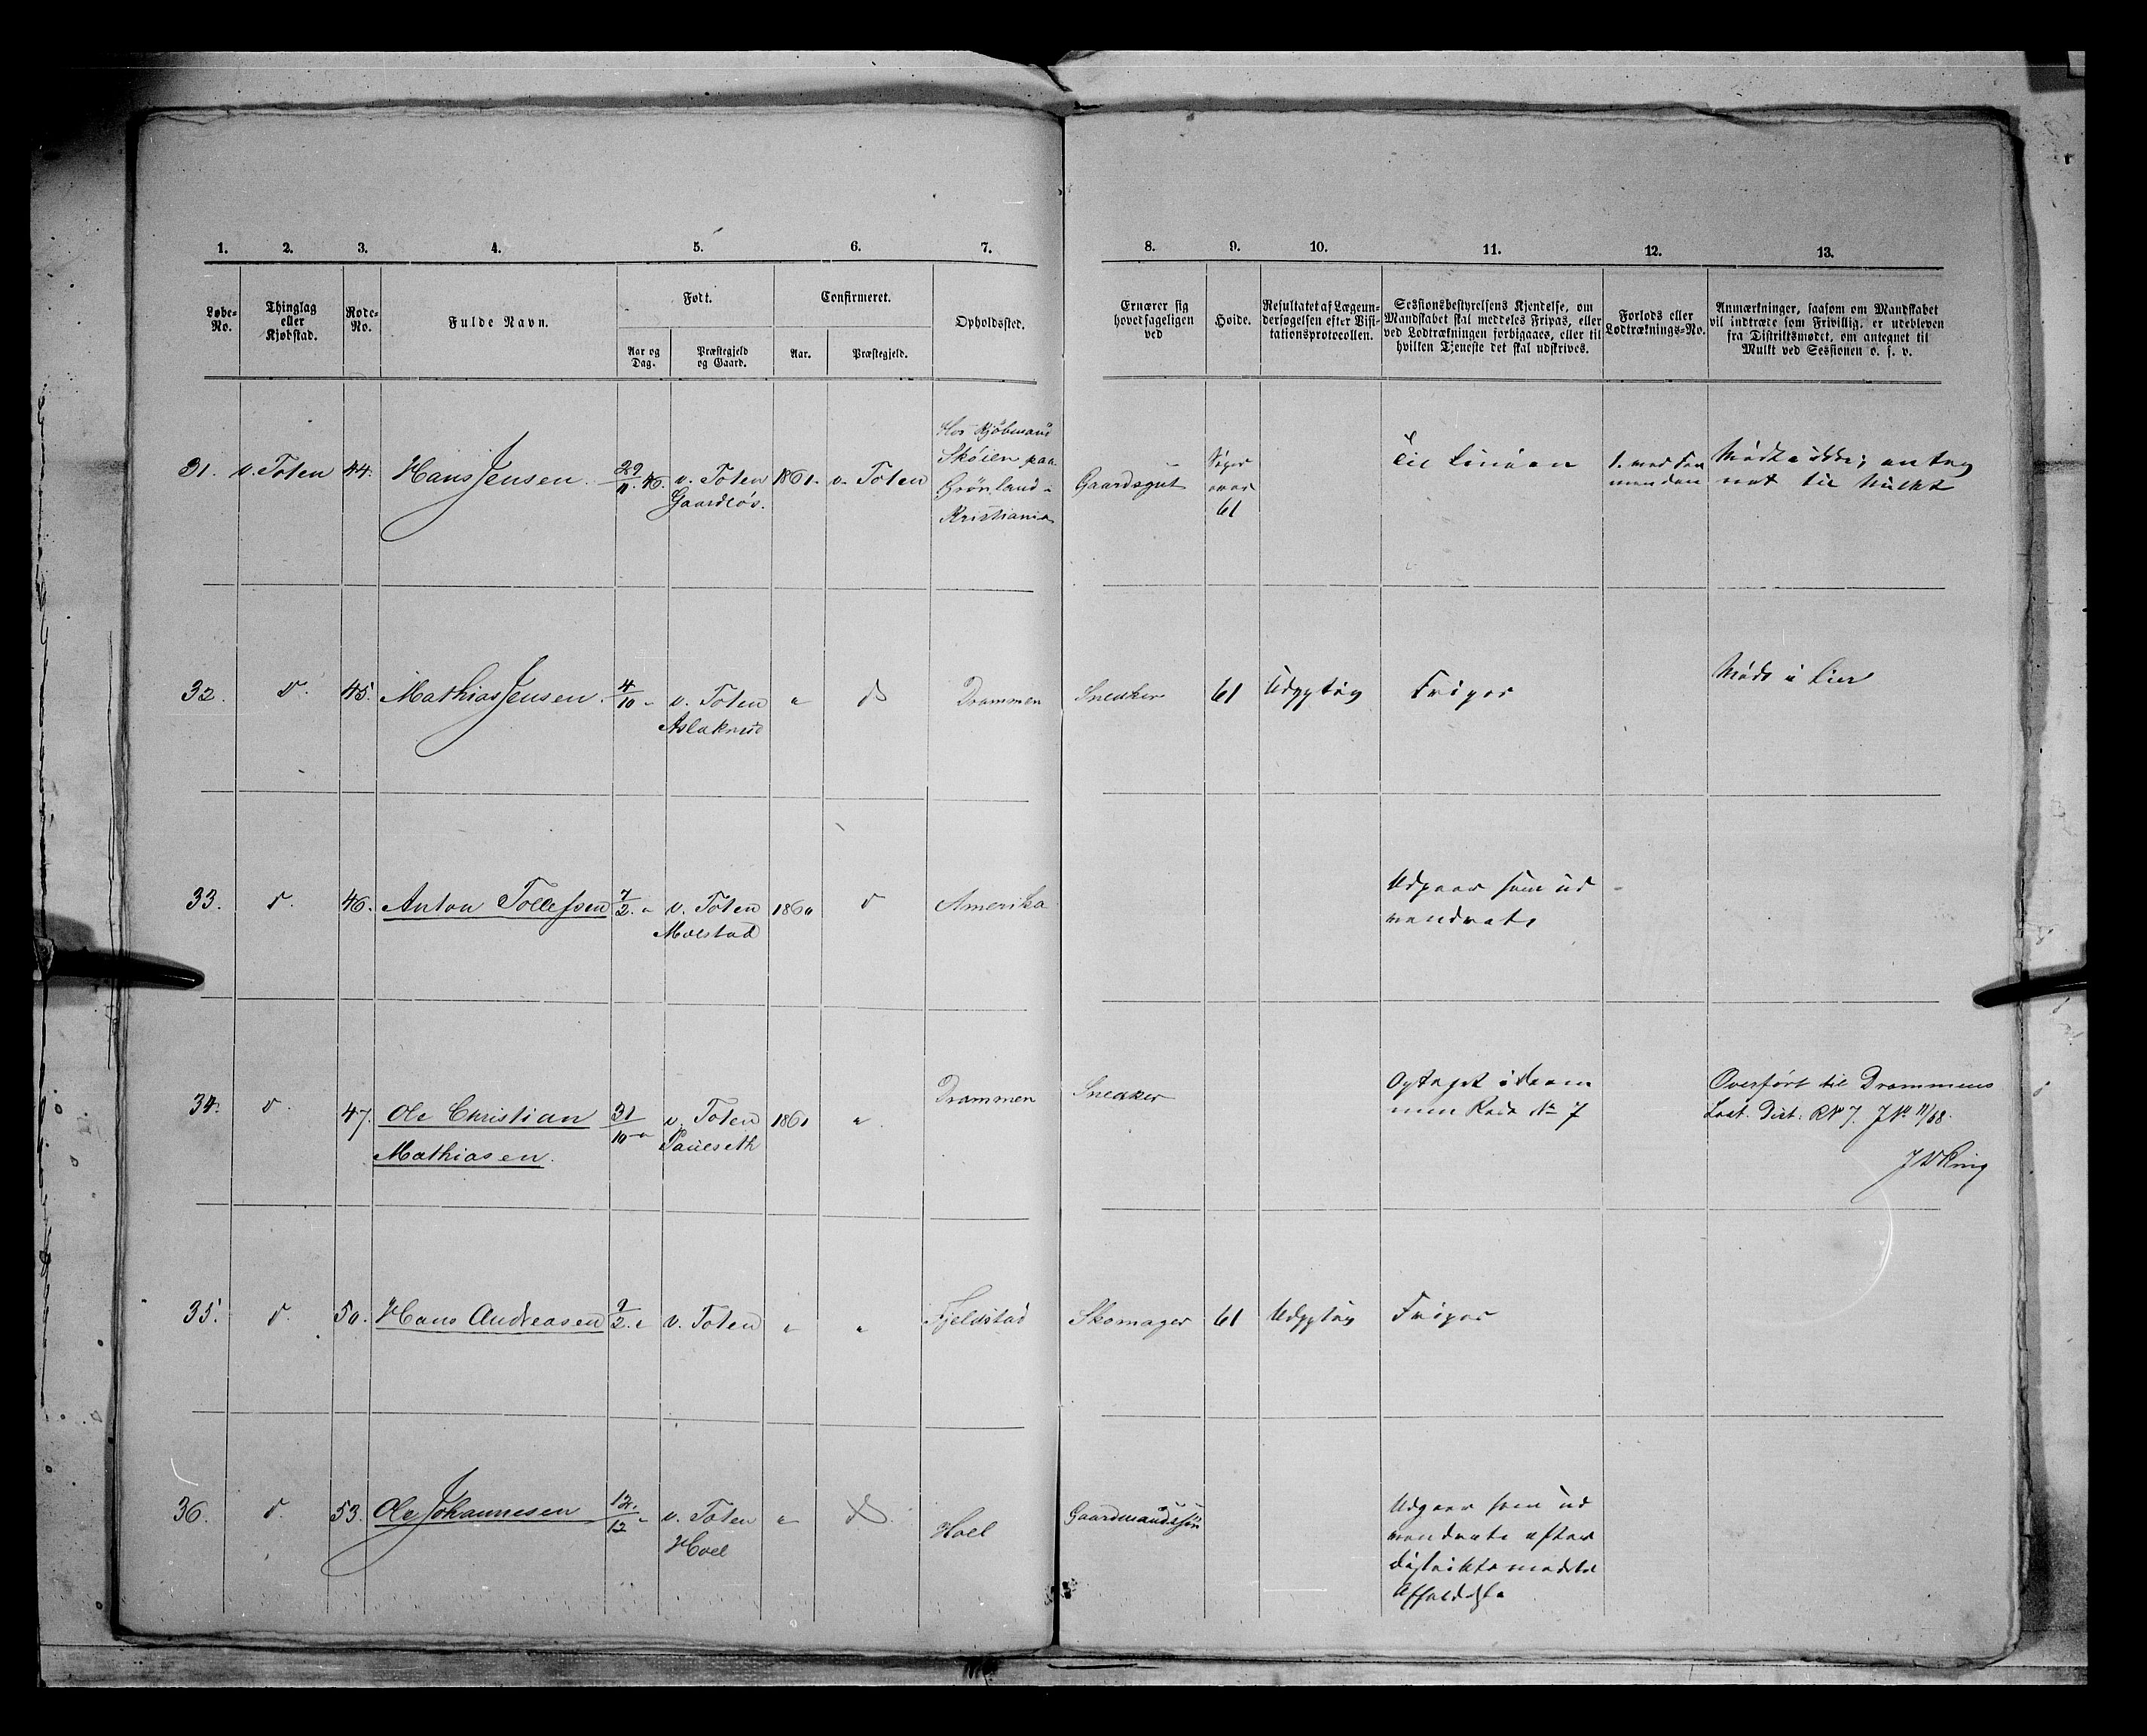 1. 2. 3. 4. 5. 6. 7. 8. 9. 10. 11. 12. 13.
Løbe-
No.
Thinglag
eller
Kjøbstad.
Rode-
No.
Fulde Navn.
Født.
Aar og
Dag.
Præstegjeld
og Gaard.
Confirmeret.
Aar.
Præstegjeld.
Opholdssted.
Ernærer sig
hovedsageligen
ved
Høide.
Resultatet af Lægeun-
dersøgelsen efter Visi-
tationsprotocollen.
Sessionsbestyrelsens Kjendelse, om
Mandskabet skal meddeles Fripas, eller
ved Lodtrækningen forbigaaes, eller til
hvilken Tjeneste det skal udskrives.
Forlods eller
Lodtræknings-No.
Anmærkninger, saasom om Mandskabet
vil indtræde som Frivillig, er udebleven
fra Distriktsmødet, om antegnet til
Mulkt ved Sessionen o. s. v.
31. v. Toten 44. Hans Jensen. 29/11. 46. v. Toten
Gaardløs.
1861. v. Toten
Hos Kjøbmand
Skøien paa
Grønland i
Kristiania
Gaardsgut
Siges
over
61
Til Linien
Mødte ikke; anteg
net til Mulkt
32. d. 45. Mathias Jensen. 4/10 " v. Toten
Aslaksrud
" do Drammen Snedker 61 Udygtig Fripas Mødt i Lier
33. d. 46. Anton Tollefsen 7/2. " v. Toten
Molstad
1860 d Amerika
Udgaar som ud
vandrede
34. d. 47. Ole Christian
Mathiasen.
31/10 " v. Toten
Paulseth
1861 " Drammen Snedker
Optaget i Dram
men Rode No 7
Overført til Drammens
Last. Dist. R No 7. J No 11/68.
35. d. 50. Hans Andreasen 9/2. " v. Toten " " Fjeldstad Skomager 61 Udygtig Fripas
36. d. 53. Ole Johannesen 12./12 " v. Toten
Hoel
" do. Hoel Gaardmandssøn
Udgaar som ud
vandrede efter
Distriktsmødets
Affholdelse